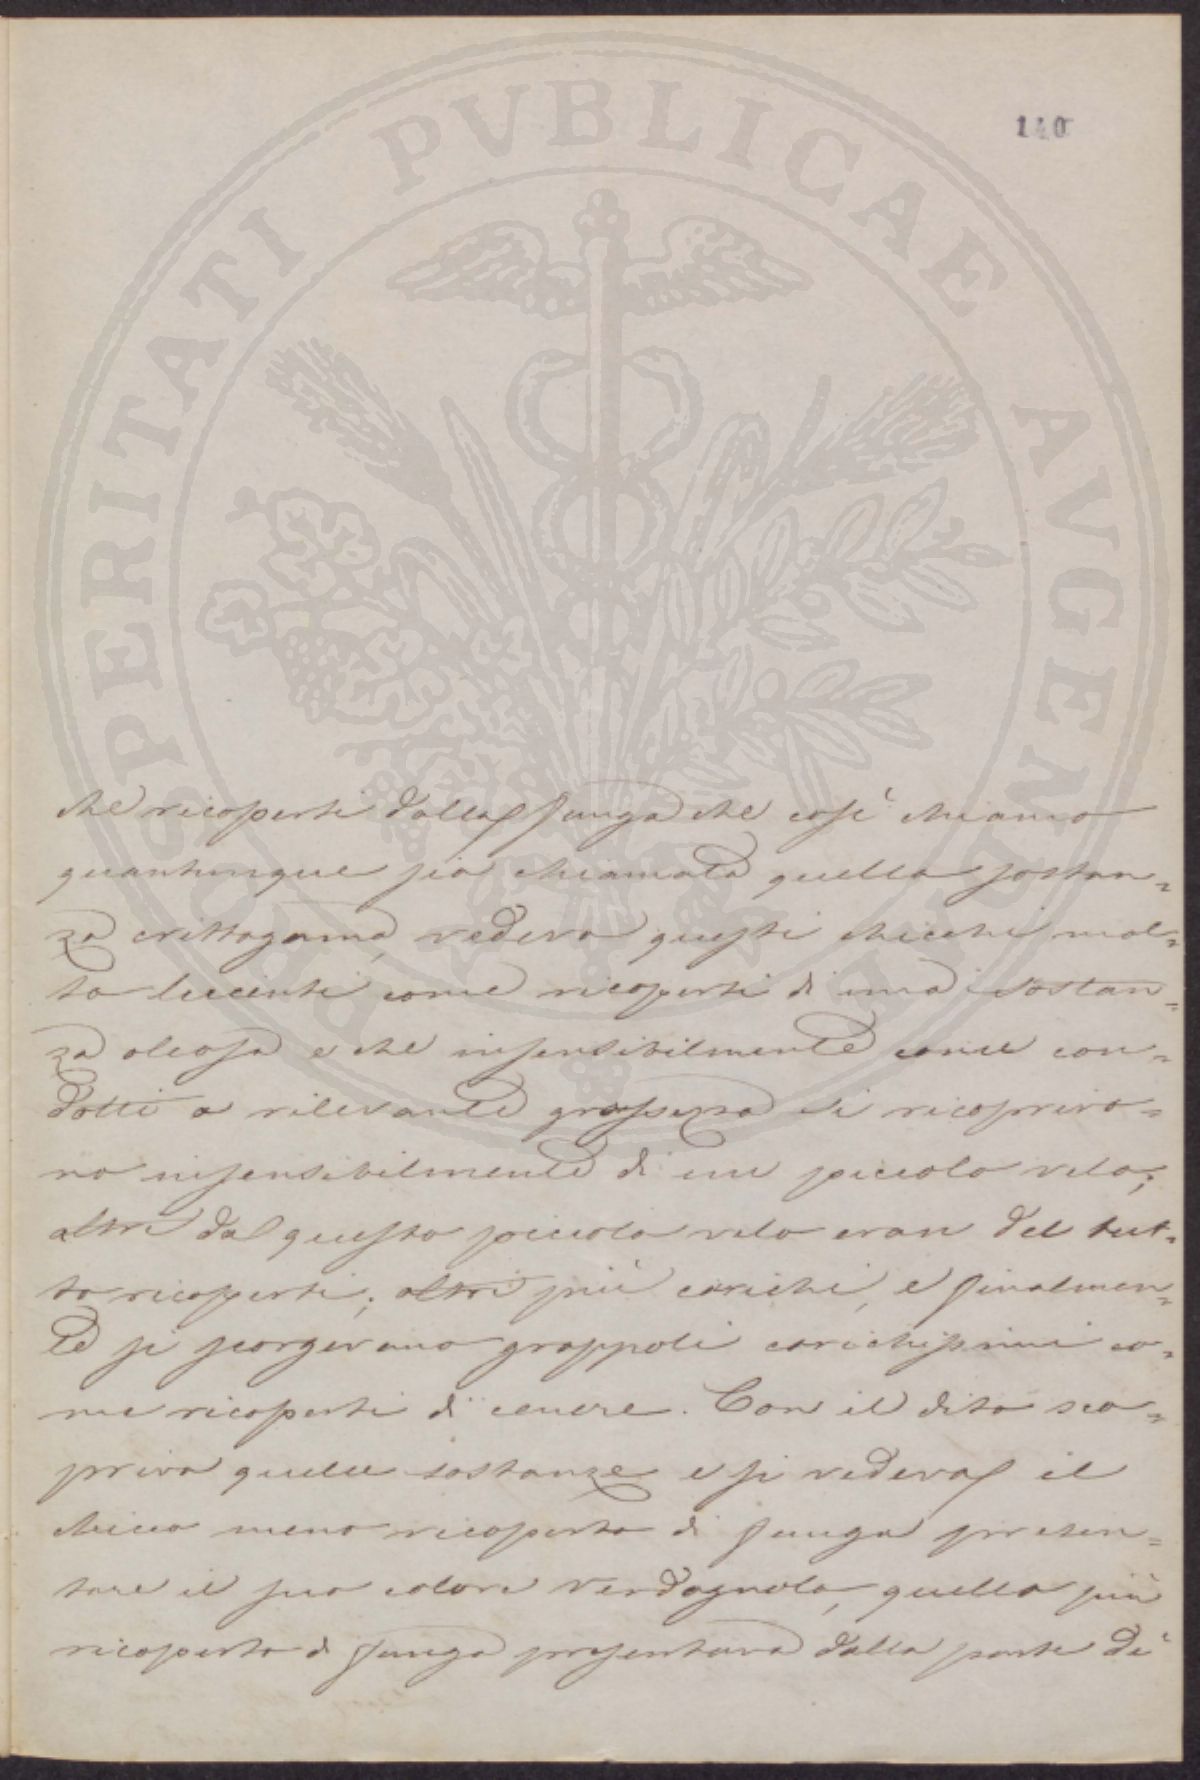 140
PROSPERITATI PVBLICAE AVGENDAE
che ricoperti dalla funga che così chiamo
quantunque sia chiamata quella sostan=
za crittogama, vedeva questi chicchi mol=
to lucenti come ricoperti di una sostan=
za oleosa e che insensibilmente come con=
dotti a rilevante grossezza si ricopriva=
no insensibilmente di un piccolo velo;
altri dal questo piccolo velo eran del tut=
to ricoperti; altri più carichi, e finalmen=
te si scorgevano grappoli carichissimi co=
me ricoperti di cenere. Con il dito sco=
priva quelle sostanze e si vedeva il
chicco meno ricoperto di funga presen=
tare il suo colore verdognolo, quello più
ricoperto di funga presentava dalla parte di